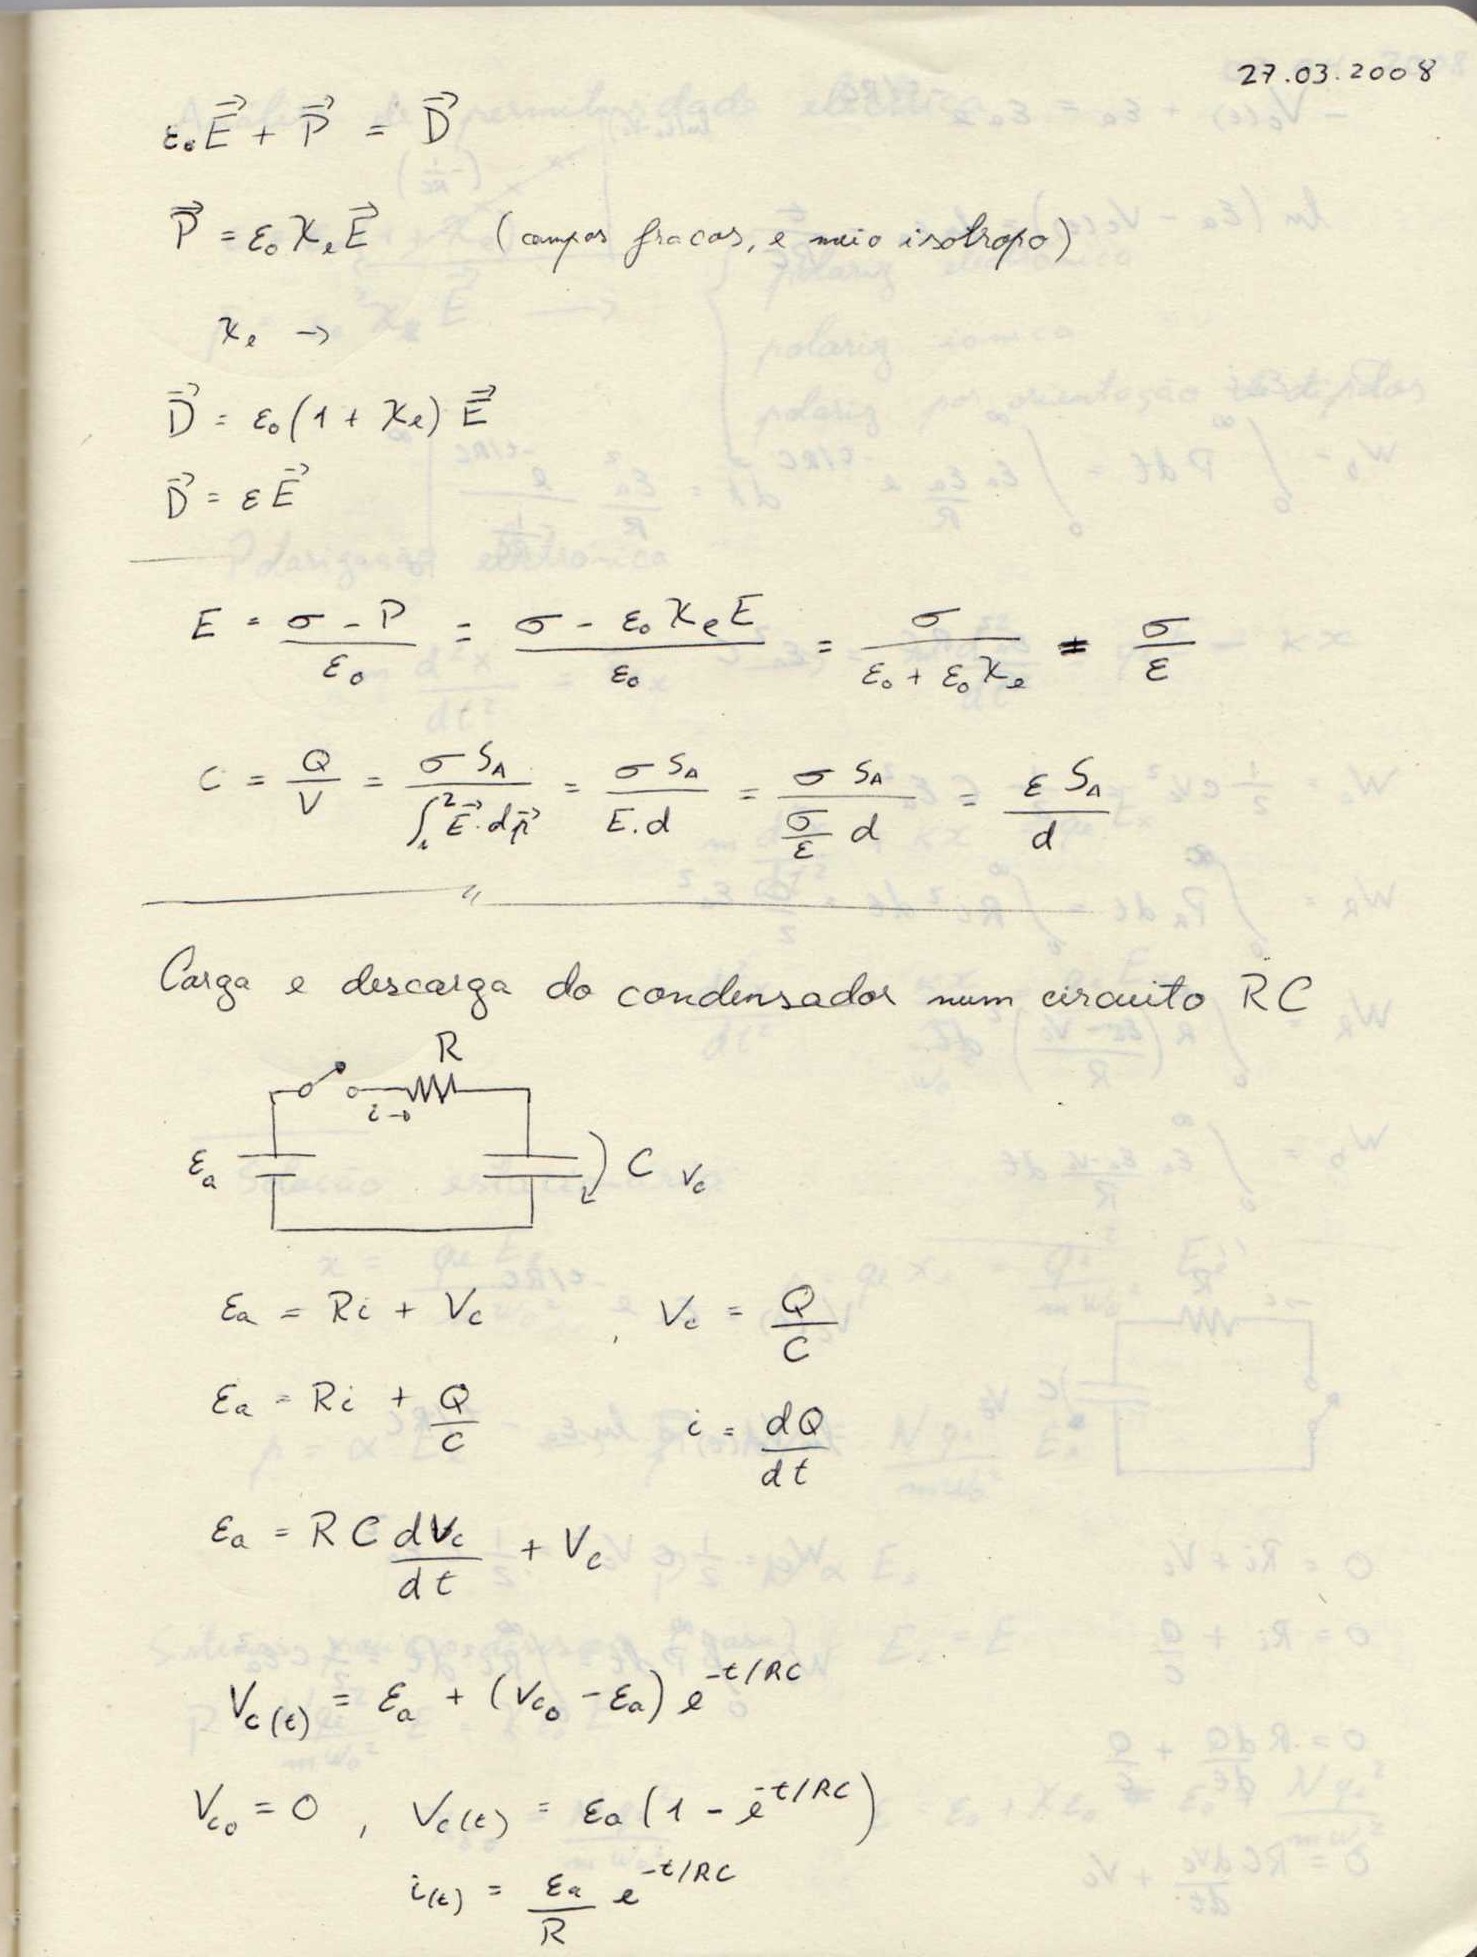 27.03.2008
ε₀E⃗ + P⃗ = D⃗
P⃗ = ε₀ χₑ E⃗ (campos fracos, e meio isotropo)
χₑ →
D⃗ = ε₀(1 + χₑ) E⃗
D⃗ = ε E⃗
E = (σ - P)/ε₀ = (σ - ε₀ χₑ E)/ε₀ = σ/(ε₀ + ε₀ χₑ) = σ/ε
C = Q/V = σ S_A/∫₁² E⃗·dp⃗ = σ S_A/E.d = σ S_A/((σ/ε) d) = ε S_A/d
Carga e descarga do condensador num circuito RC
R
i→
εₐ
C V_c
εₐ = Ri + V_c , V_c = Q/C
εₐ = Ri + Q/C i = dQ/dt
εₐ = R C dV_c/dt + V_c
V_c(t) = εₐ + (V_c₀ - εₐ) e^(-t/RC)
V_c₀ = 0 , V_c(t) = εₐ (1 - e^(-t/RC))
i(t) = εₐ/R e^(-t/RC)